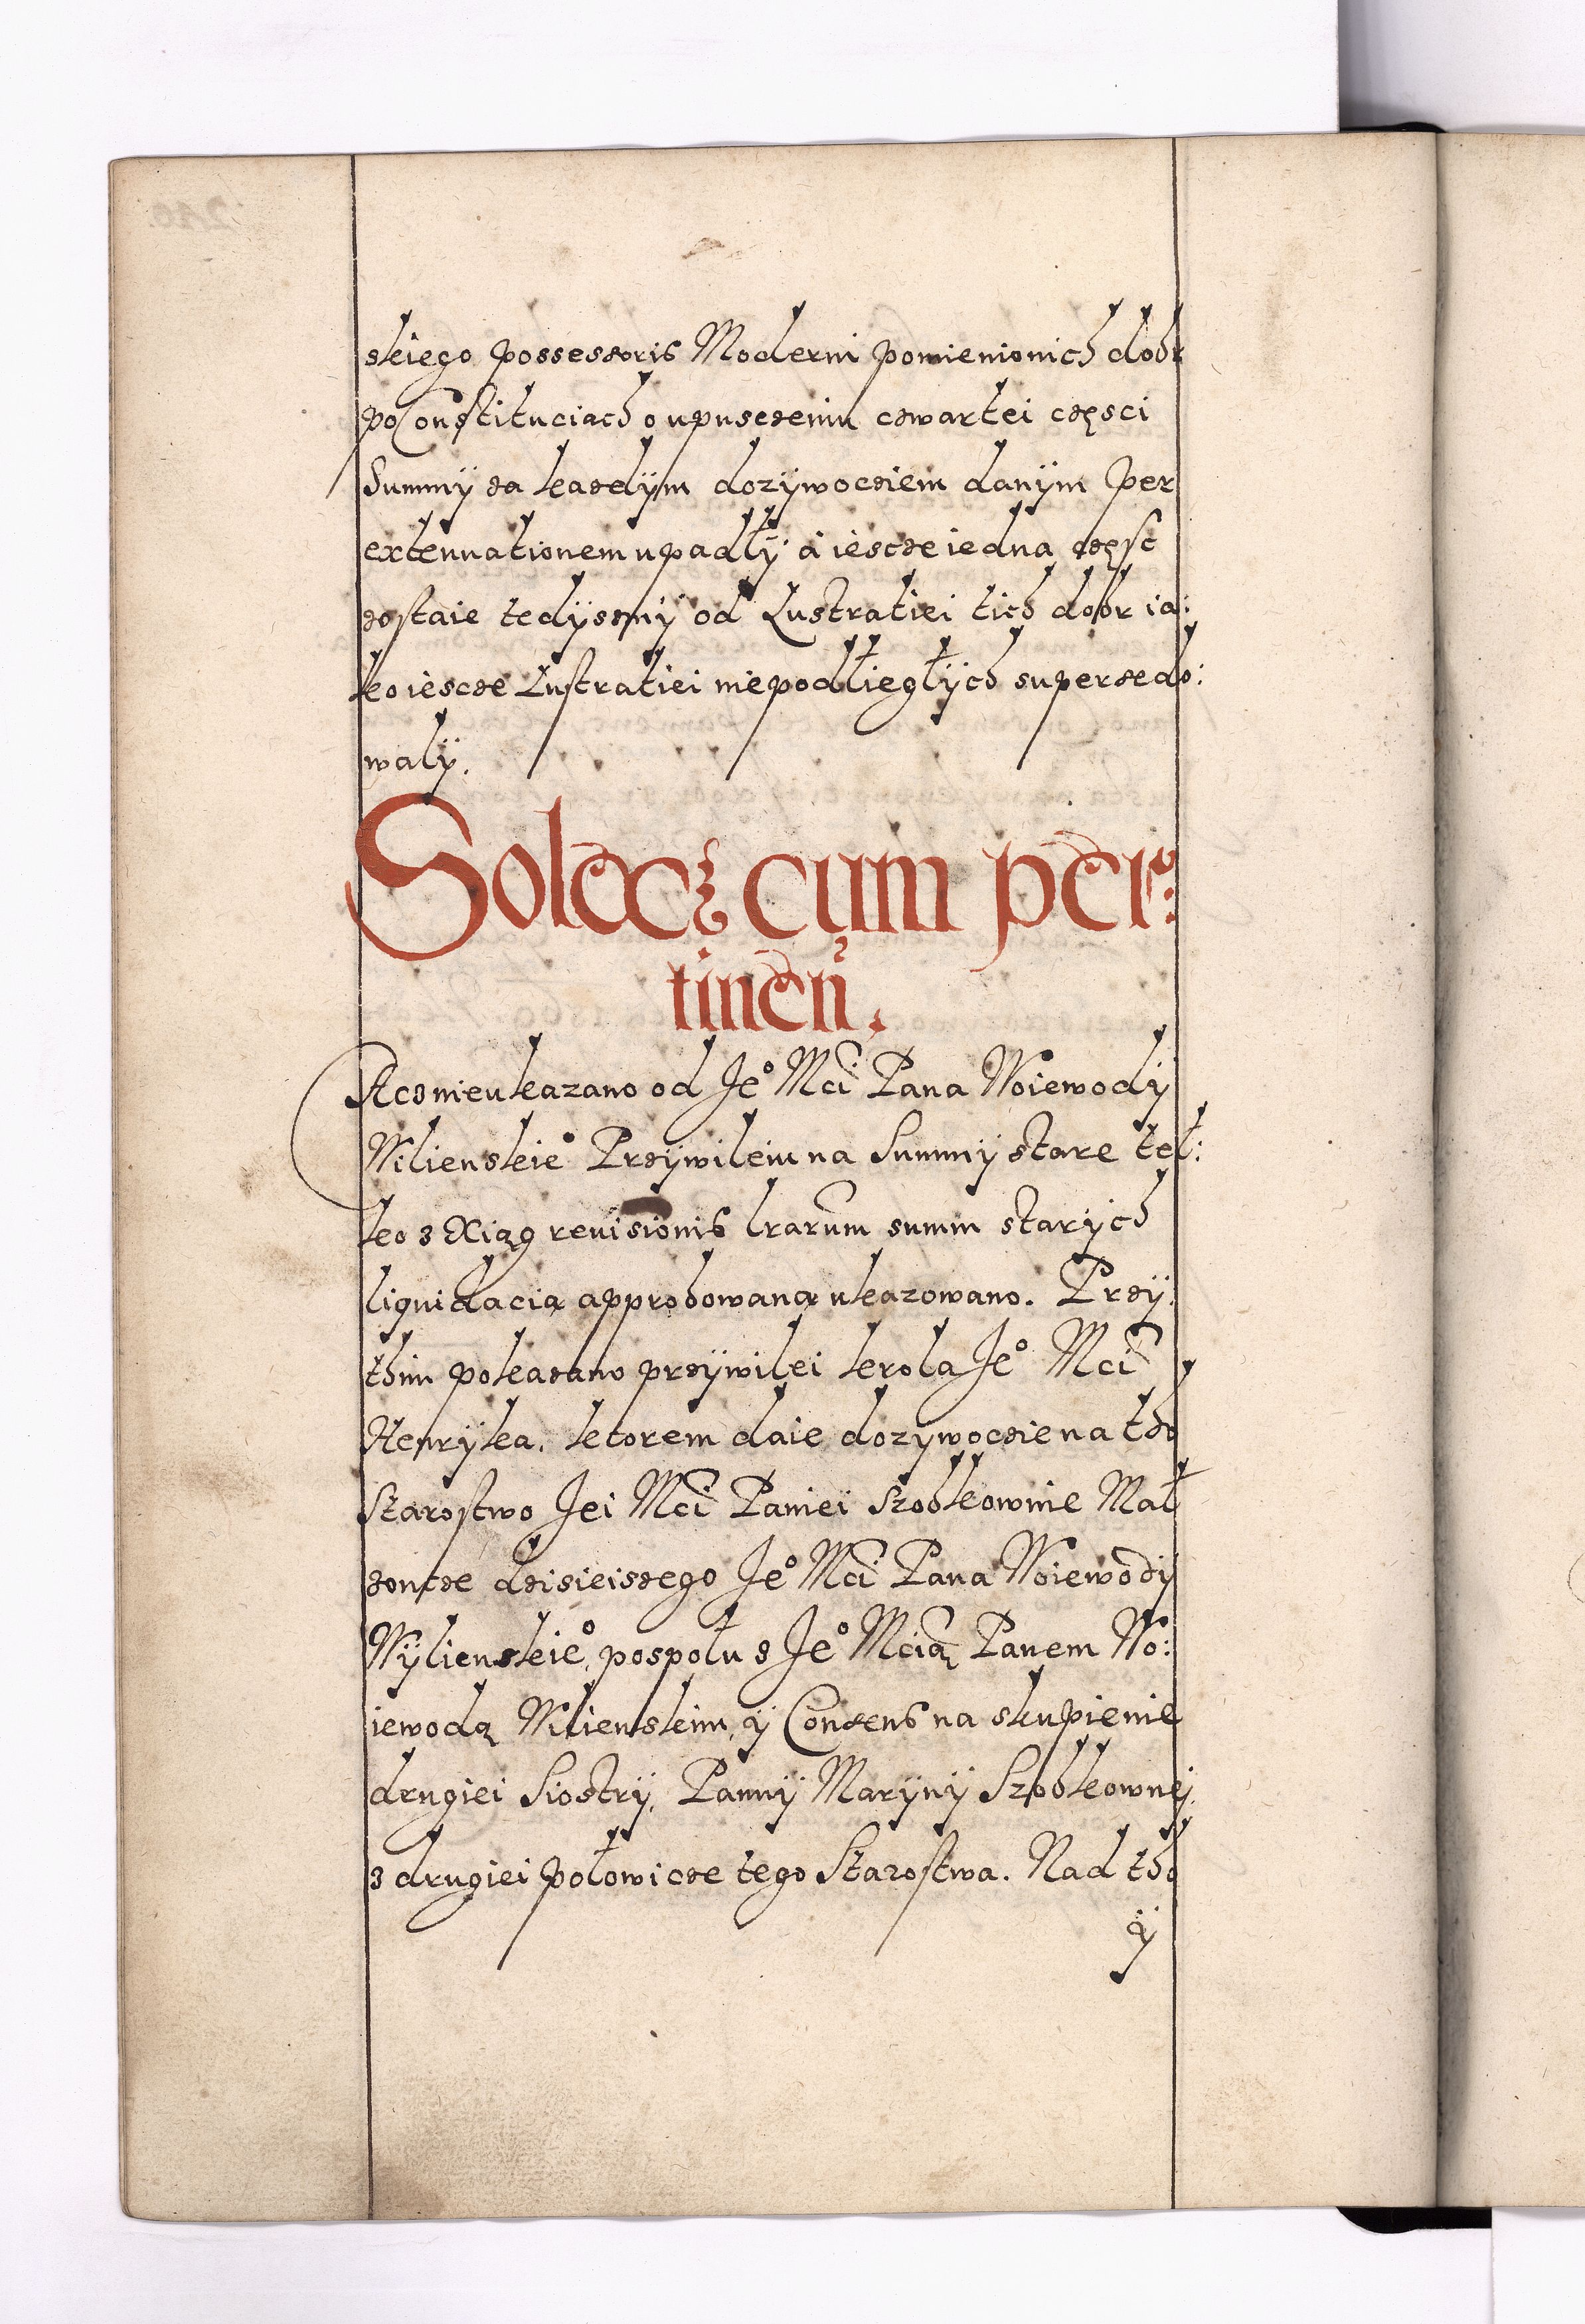 skiego possessoris Moderni pomienionich dobr
po Constituciach o upusczeniu czwartei częsci
Summÿ za kazdÿm dozÿwociem danÿm per
extenuationem upadłÿ á iescze iedna część
zostaie tedÿsmÿ od Lustratiei tich dobr ia:
ko iescze Lustratiei niepodliegłÿch supersedo:
walÿ.
Solecz cum per:
tinen.
Acz nieukazano od Je° Mci Pana Woiewodÿ
Wilienskie° Przÿwileiu na Summÿ stare tÿl:
ko z Xiąg revisionis lrarum summ starÿch
liquidacią approbowaną ukazowano. Przÿ
thim pokazano przÿwilei krola Je° Mci
Henrÿka. ktorem daie dozywoczie na tho
Starostwo Jei Mci Paniei Szobkownie Mał
zoncze dzisieiszego Je° Mci Pana Woiewodÿ
Wÿlienskie° pospołu z Je° Mcią Panem Wo:
iewodą Wilienskim, ÿ Consens na skupienie
drugiei Siostrÿ, Pannÿ Marÿnÿ Szobkownej
z drugiei połowicze tego Starostwa. Nad tho
ÿ